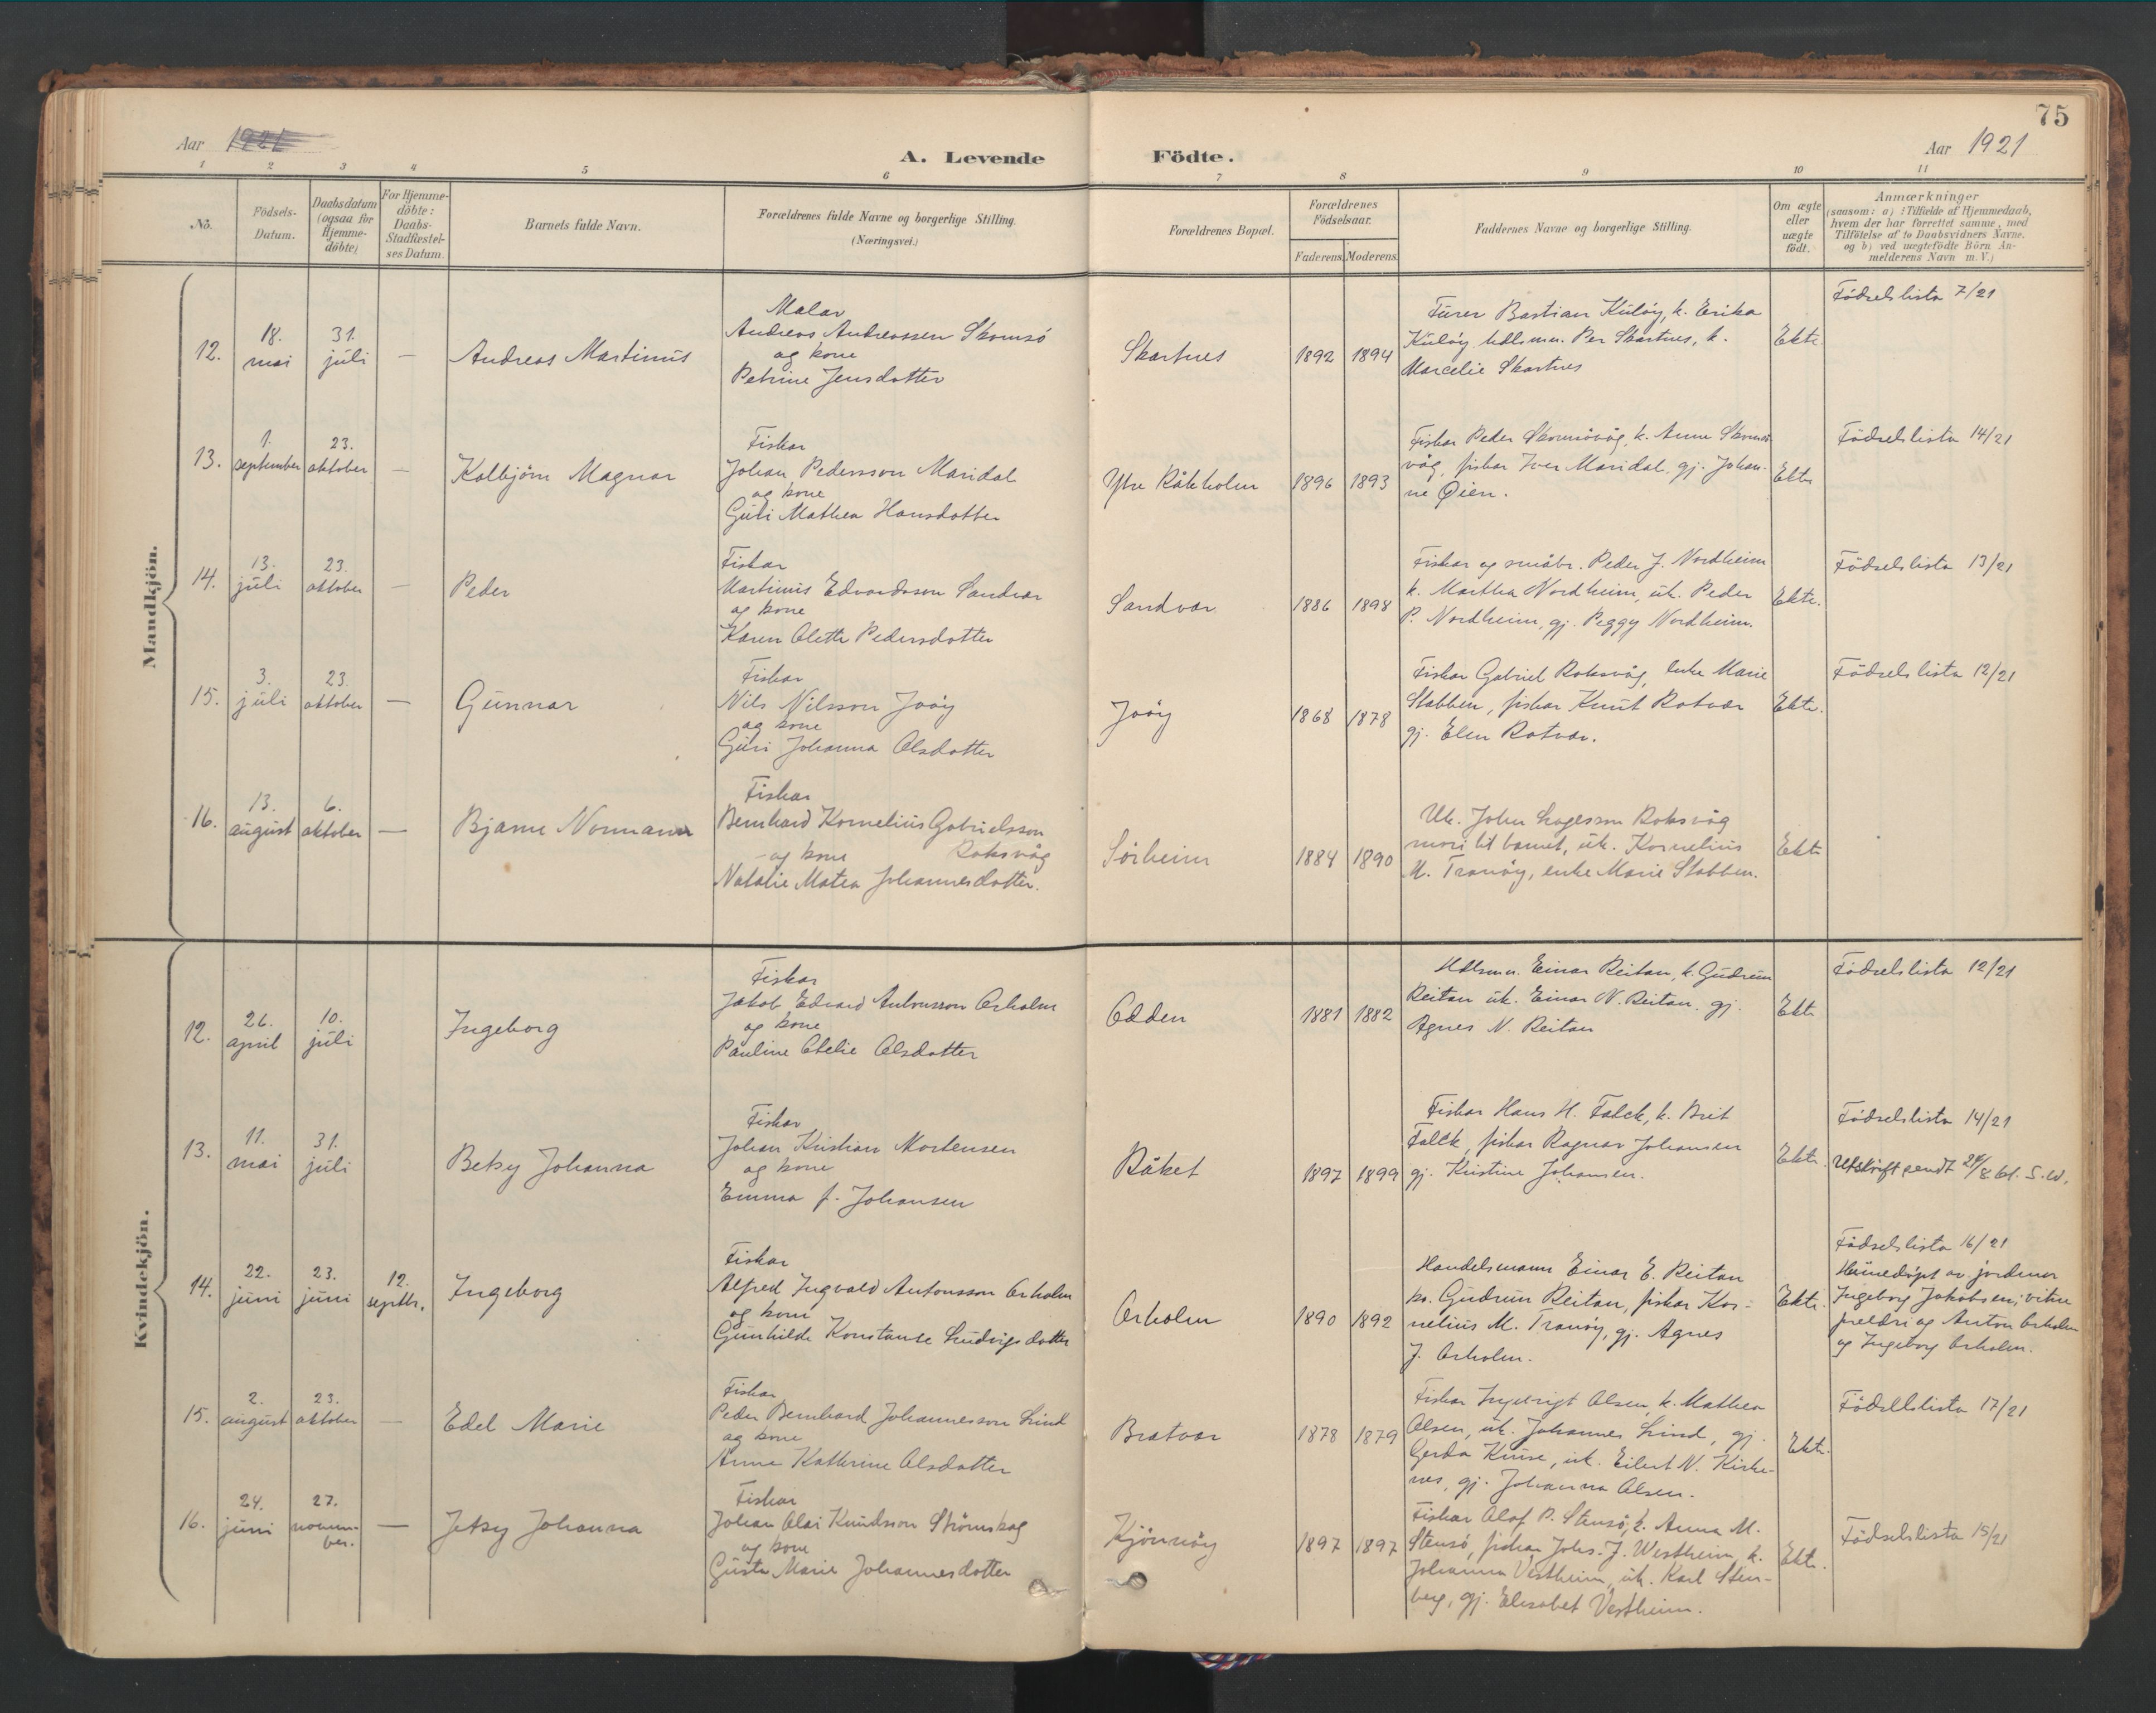 75
Aar 1921
A. Levende Födte.
Aar 1921
1 2 3 4 5 6 7 8 9 10 11
No.
Födsels-
Datum.
Daabsdatum
(ogsaa for
Hjemme-
döbte)
For Hjemme-
döbte:
Daabs-
Stadfæstel-
ses Datum.
Barnets fulde Navn.
Forældrenes fulde Navne og borgerlige Stilling.
(Næringsvei.)
Forældrenes Bopæl.
Forældrenes
Födselsaar.
Faderens. Moderens.
Faddernes Navne og borgerlige Stilling.
Om ægte
eller
uægte
födt.
Anmærkninger
(saasom: a) : Tilfælde af Hjemmedaab,
hvem der har forrettet samme, med
Tilföielse af to Daabsvidners Navne,
og b) ved uægtefödte Börn An-
melderens Navn m. V.)
Mandkjön.
12.
18.
mai
31.
juli
—
Andreas Martinus
Malar
Andreas Andreassen Skomsö
og kone
Petrine Jensdotter
Skartnes
1892 1894
Furer Bastian Kulöy, k. Erika
Kulöy, hdlsmn. Per Skartnes, k.
Marcelie Skartnes
Ekte.
Födselslista 7/21
13.
1.
september
23.
oktober
—
Kolbjörn Magnar
Fiskar
Johan Pedersson Maridal
og kone
Guri Mathea Hansdotter
Ytre Råkholm
1896 1893
Fiskar Peder Skomsövåg, k. Anne Skomsö-
våg, fiskar Iver Maridal, gj. Johan-
ne Øien.
Ekte
Födselslista 14/21
14.
13.
juli
23.
oktober
—
Peder
Fiskar
Martinus Edvardsson Sandvær
og kone
Karen Olette Pedersdotter
Sandvær
1886 1898
Fiskar og småbr. Peder J. Nordheim
k. Martha Nordheim, uk. Peder
P. Nordheim, gj. Peggy Nordheim.
Ekte.
Födselslista 13/21
15.
3.
juli
23.
oktober
—
Gunnar
Fiskar
Nils Nilsson Joöy
og kone
Guri Johanna Olsdotter
Joöy
1868 1878
Fiskar Gabriel Roksvåg, enke Marie
Stabben, fiskar Knut Rotvær
gj. Elen Rotvær.
Ekte.
Födselslista 12/21
16.
13.
august
6.
oktober
—
Bjarne Normann
Fiskar
Bernhard Kornelius Gabrielsson
og kone Roksvåg
Natalie Matea Johannesdotter.
Sörheim
1884 1890
Uk. John Roksvåg
mori til barnet, uk. Kornelius
M. Tranöy, enke Marie Stabben.
Ekte
Kvindekjön.
12.
26.
april
10.
juli
Ingeborg
Fiskar
Jakob Edvard Antonsson Orholm
og kone
Pauline Otelie Olsdotter
Odden
1881 1882
Hdlsmn. Einar Reitan, k. Gudrun
Reitan uk. Einar N. Reitan, gj.
Agnes N. Reitan
Ekte
Födselslista 12/21
13.
11.
mai
31.
juli
Betsy Johanna
Fiskar
Johan Kristian Mortensen
og kone
Emma f. Johansen
Råket
1897 1899
Fiskar Hans H. Falck, k. Brit
Falck, fiskar Ragnar Johansen
gj. Kristine Johansen.
Ekte.
Födselslista 14/21
Utskrift sendt 24/8.61. S.W.
14.
22.
juni
23.
juni
12.
septbr.
Ingeborg
Fiskar
Alfred Ingvald Antonsson Orholm
og kone
Gunhilde Konstanse Ludvigsdotter
Orholm
1890 1892
Handelsmann Einar E. Reitan
ko. Gudrun Reitan, fiskar Kor-
nelius M. Tranöy, gj. Agnes
J. Orholm.
Ekte.
Födselslista 16/21
Heimedöpt av jordmor
Ingeborg Jakobsen; vitne
foreldri og Anton Orholm
og Ingeborg Orholm.
15.
2.
august
23.
oktober
—
Edel Marie
Fiskar
Peder Bernhard Johannesson Lind
og kone
Anne Kathrine Olsdotter
Bratvær
1878 1879
Fiskar Ingebrigt Olsen, k. Mathea
Olsen, uk. Johannes Lind, gj.
Gerda Kruse, uk. Eilert N. Kirke-
nes, gj. Johanna Olsen.
Ekte.
Födselslista 17/21
16.
24.
juni
27.
novem-
ber.
—
Jetsy Johanna
Fiskar
Johan Olai Knudsson Strömskag
og kone
Gusta Marie Johannesdotter
Kjönnöy
1897 1897
Fiskar Olaf P. Stensö, k. Anna M.
Stensö, fiskar Johs. J. Westheim, k.
Johanna Vestheim, uk. Karl Sten-
berg, gj. Elisabet Vestheim.
Ekte.
Födselslista 15/21